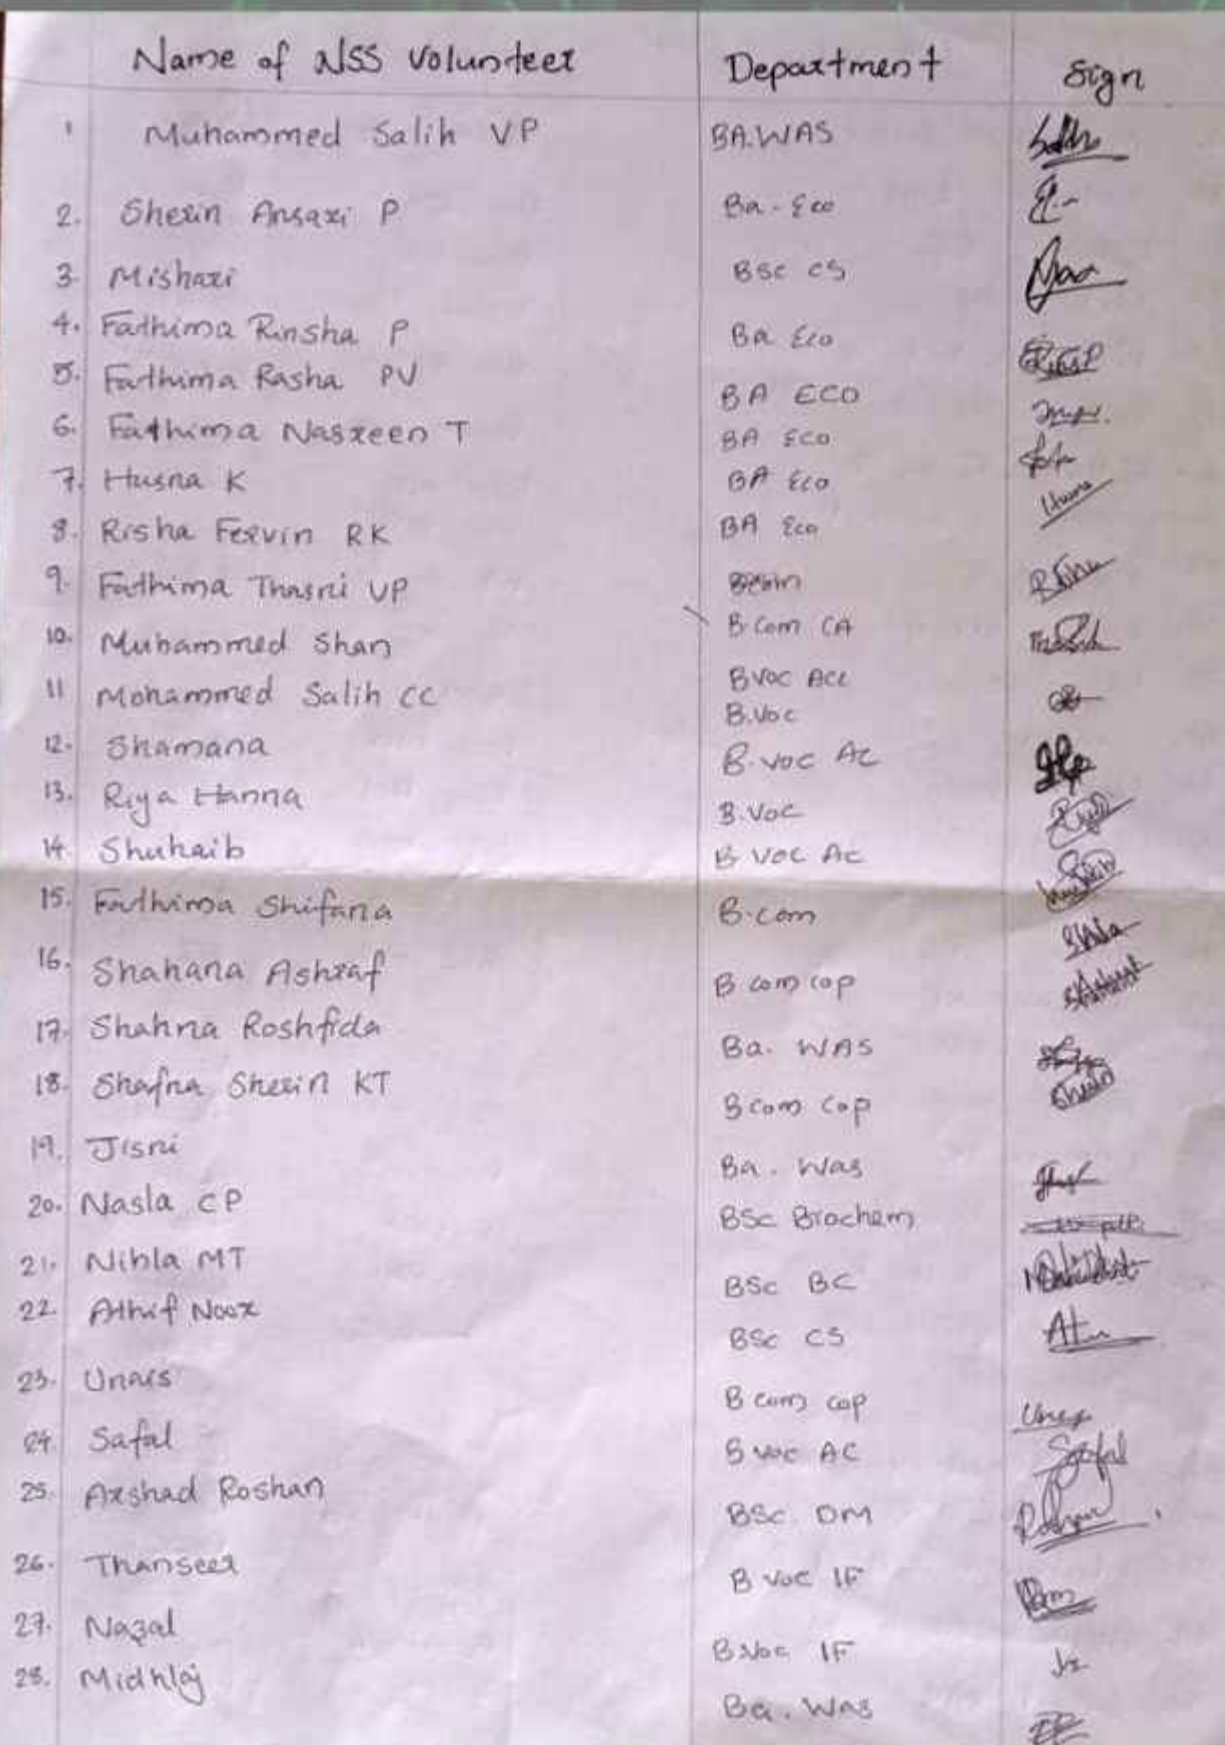 Name of NSS Volunteer Department Sign
1 Muhammed Salih VP BA.WAS
2. Sherin Ansari P Ba - Eco
3. Mishari BSc CS
4. Fathima Rinsha P Ba Eco
5. Fathima Rasha PV BA ECO
6. Fathima Nasreen T BA Eco
7. Husna K BA Eco Husna
8. Risha Fervin RK BA Eco
9. Fathima Thasni VP Bcom
10. Muhammed Shan B.Com CA
11 Mohammed Salih CC BVOC ACC
B.Voc
12. Shamana B.voc AC
13. Riya Hanna B.Voc
14. Shuhaib B VOC AC
15. Fathima Shifana B.com
16. Shahana Ashraf B com cop
17. Shahna Roshfida Ba. WAS
18. Shafna Sherin KT Bcom Cop
19. Jisni Ba. Was
20. Nasla CP BSc Biochem
21. Nihla MT BSc BC
22 Athif Noor BSc CS
23. Unais B com cop
24. Safal B voc AC Safal
25. Arshad Roshan BSc. DM
26. Thanseer B Voc IF
27. Nazal B.Voc IF
28. Midhlaj Ba. Was